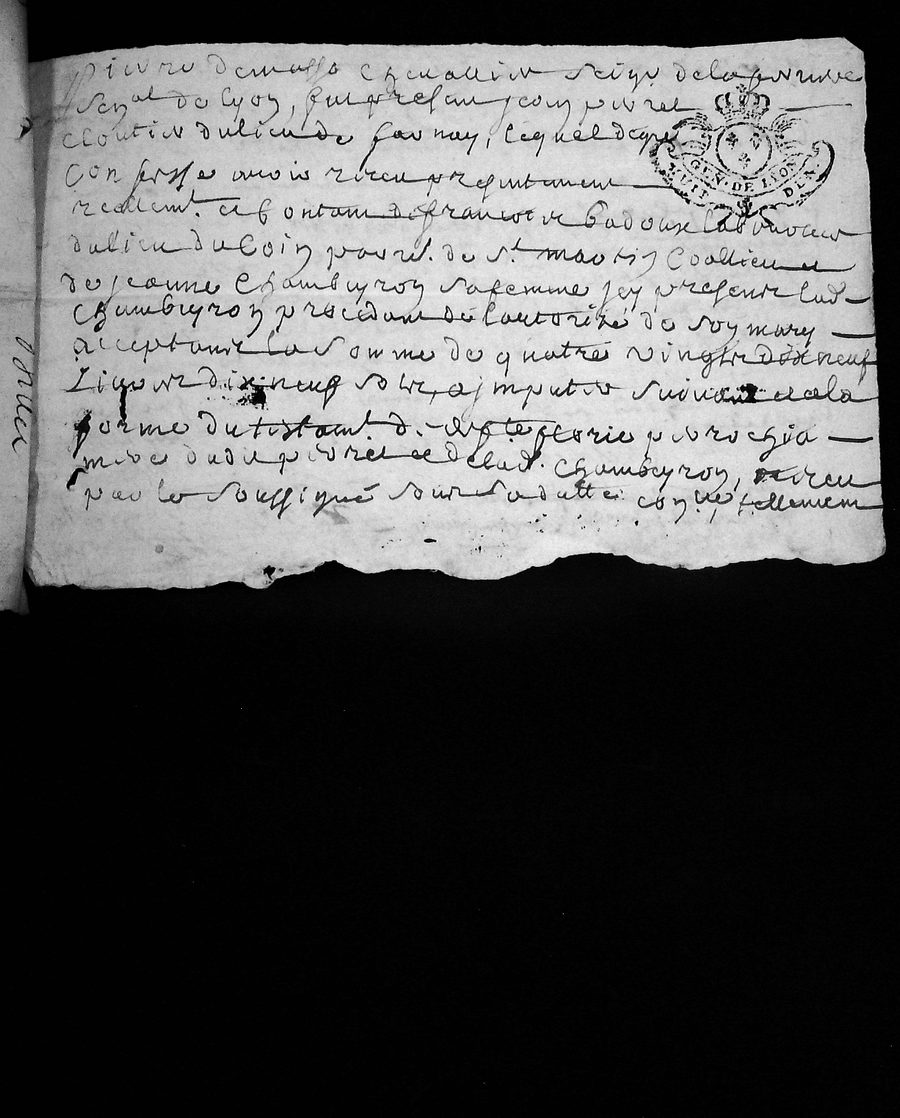 Pierre Demasso Chevallier Seigr dela ferriere
Senal de Lyon, fut present jean pierret
cloutier du lieu de farnay, lequel de gre
Confesse avoir receu presentement
reellemt. et contant de francois Badoux laboureur
du lieu du Coin parr. de St. martin Coallieu et
de jeanne Chambeyron sa femme jcy presente lad.
Chambeyron procedant de l'autorité de son mary
acceptante la somme de quatre vingts dix neuf
Livres dix neuf sols, a jmputer suivant et a la
forme du testamt. de florie
mere dudit pierret et de lad. Chambeyron, receu
par le soussigné sur sa datte tellement
GEN. DE LYON
HUIT DEN.